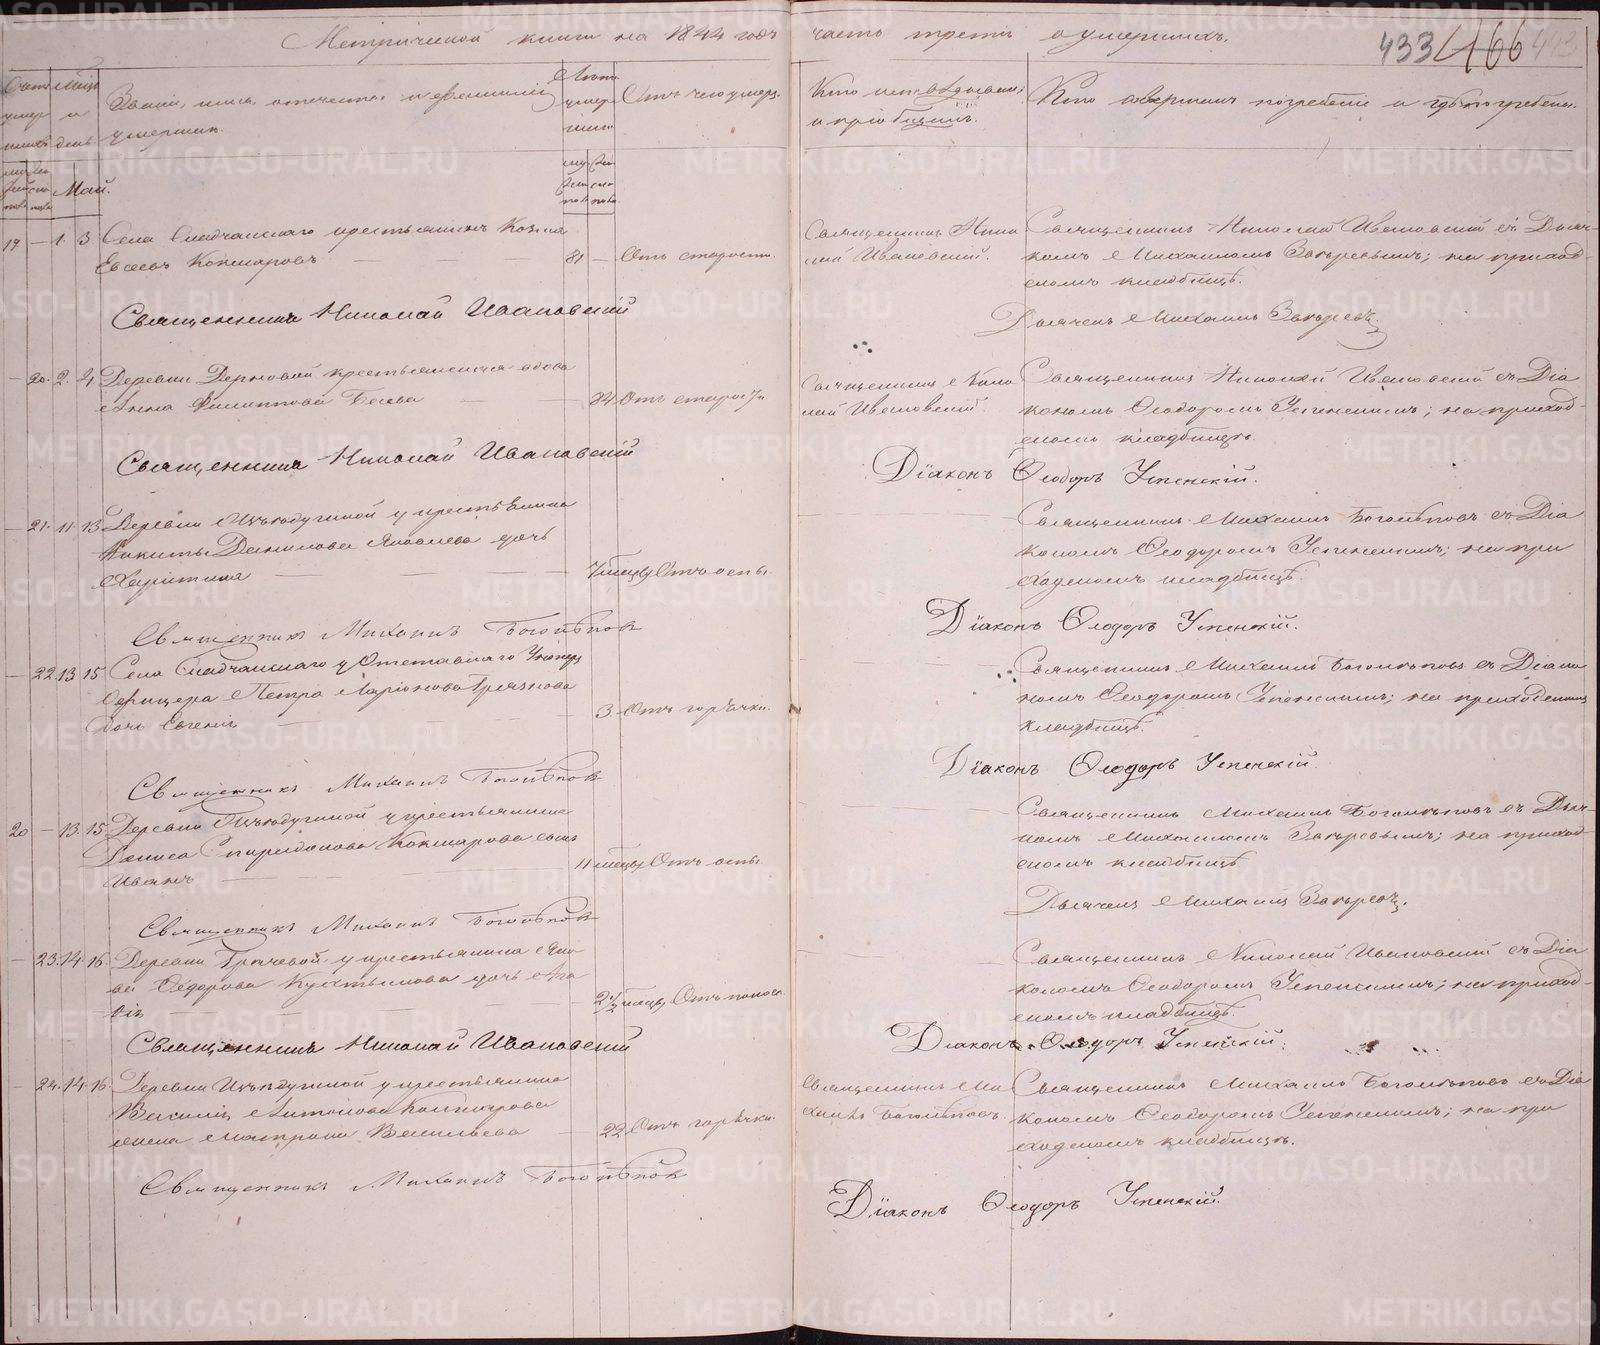 Метрической книги на 1844 годъ
часть третія о умершихъ.
433 466 413
Счетъ умершихъ
Мѣсяцъ и день
Званіе, имя, отечество и фамилія умершихъ.
Лѣта умершихъ
Отъ чего умеръ.
Кто исповѣдывалъ и пріобщалъ.
Кто совершалъ погребеніе и гдѣ погребены.
Май.
19 — 1. 3. Села Сладчанскаго крестьянинъ Козма
Евсеевъ Кокшаровъ — 81 — Отъ старости.
Священникъ Николай Ивановскій.
Священникъ Николай Ивановскій съ Дьячкомъ Михаиломъ Захаровымъ; на приходскомъ кладбищѣ.
Священникъ Николай Ивановскій
Дьячекъ Михаилъ
— 20. 2. 4. Деревни крестьянская вдова
Анна Филиппова — 84 Отъ старости
Священникъ Николай Ивановскій.
Священникъ Николай Ивановскій съ Діакономъ Ѳеодоромъ Успенскимъ; на приходскомъ кладбищѣ.
Священникъ Николай Ивановскій
Діаконъ Ѳеодоръ Успенскій.
— 21. 11. 13. Деревни у крестьянина
Никиты Данилова Яковлева дочь
Харитина — 7 мѣсяц. Отъ оспы.
Священникъ Михаилъ Боголѣповъ съ Діакономъ Ѳеодоромъ Успенскимъ; на приходскомъ кладбищѣ.
Священникъ Михаилъ Боголѣповъ
Діаконъ Ѳеодоръ Успенскій.
— 22. 13. 15. Села Сладчанскаго у отставнаго Унтеръ
Офицера Петра Ларіонова Грязнова
дочь Евгенія — 3 Отъ горячки.
Священникъ Михаилъ Боголѣповъ съ Діакономъ Ѳеодоромъ Успенскимъ; на приходскомъ кладбищѣ.
Священникъ Михаилъ Боголѣповъ
Діаконъ Ѳеодоръ Успенскій.
20 — 13. 15. Деревни у крестьянина
Дениса Спиридонова Кокшарова сынъ
Иванъ — 11 мѣсяц. Отъ оспы
Священникъ Михаилъ Боголѣповъ съ Дьячкомъ Михаиломъ; на приходскомъ кладбищѣ.
Священникъ Михаилъ Боголѣповъ
Дьячекъ Михаилъ
— 23. 14. 16. Деревни Грачевой у крестьянина
Ѳедорова дочь
— 2 1/2 мѣсяц. Отъ поноса
Священникъ Николай Ивановскій съ Діакономъ Ѳеодоромъ Успенскимъ; на приходскомъ кладбищѣ.
Священникъ Николай Ивановскій
Діаконъ Ѳеодоръ Успенскій.
— 24. 14. 16. Деревни у крестьянина
Василія Антонова
жена Матрона Васильева — 22 Отъ горячки.
Священникъ Михаилъ Боголѣповъ.
Священникъ Михаилъ Боголѣповъ съ Діакономъ Ѳеодоромъ Успенскимъ; на приходскомъ кладбищѣ.
Священникъ Михаилъ Боголѣповъ
Діаконъ Ѳеодоръ Успенскій.
METRIKI.GASO-URAL.RU